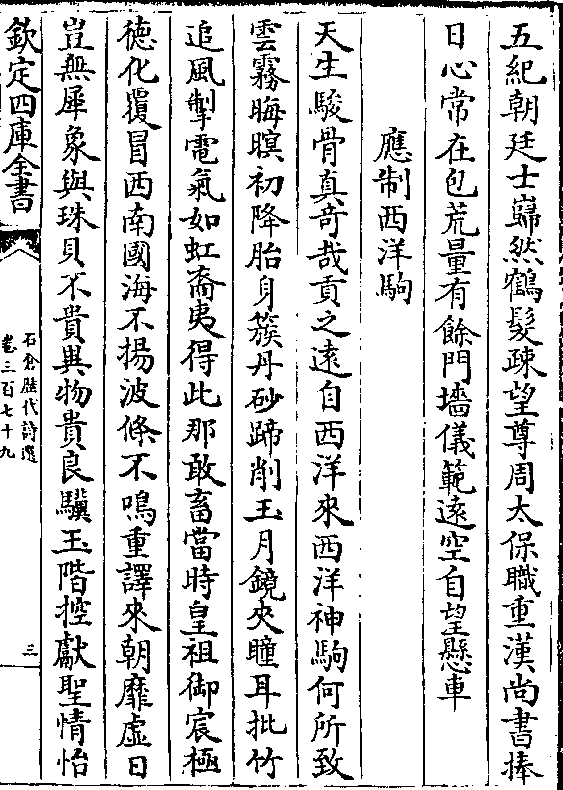 五紀朝廷士巋然鶴髮疎望尊周太保職重漢尚書捧
日心常在包荒量有餘門墻儀範遠空自望懸車
應制西洋駒
天生駿骨真竒哉貢之逺自西洋來西洋神駒何所致
雲霧晦暝初降胎身簇丹砂蹄削玉月鏡夾瞳耳批竹
追風掣電氣如虹裔夷得此那敢畜當時皇祖御宸極
徳化覆冒西南國海不揚波條不鳴重譯來朝靡虛日
豈無犀象與珠貝不貴異物貴良驥玉階控獻聖情怡
欽定四庫全書
石倉歴代詩選
卷三百七十九
三